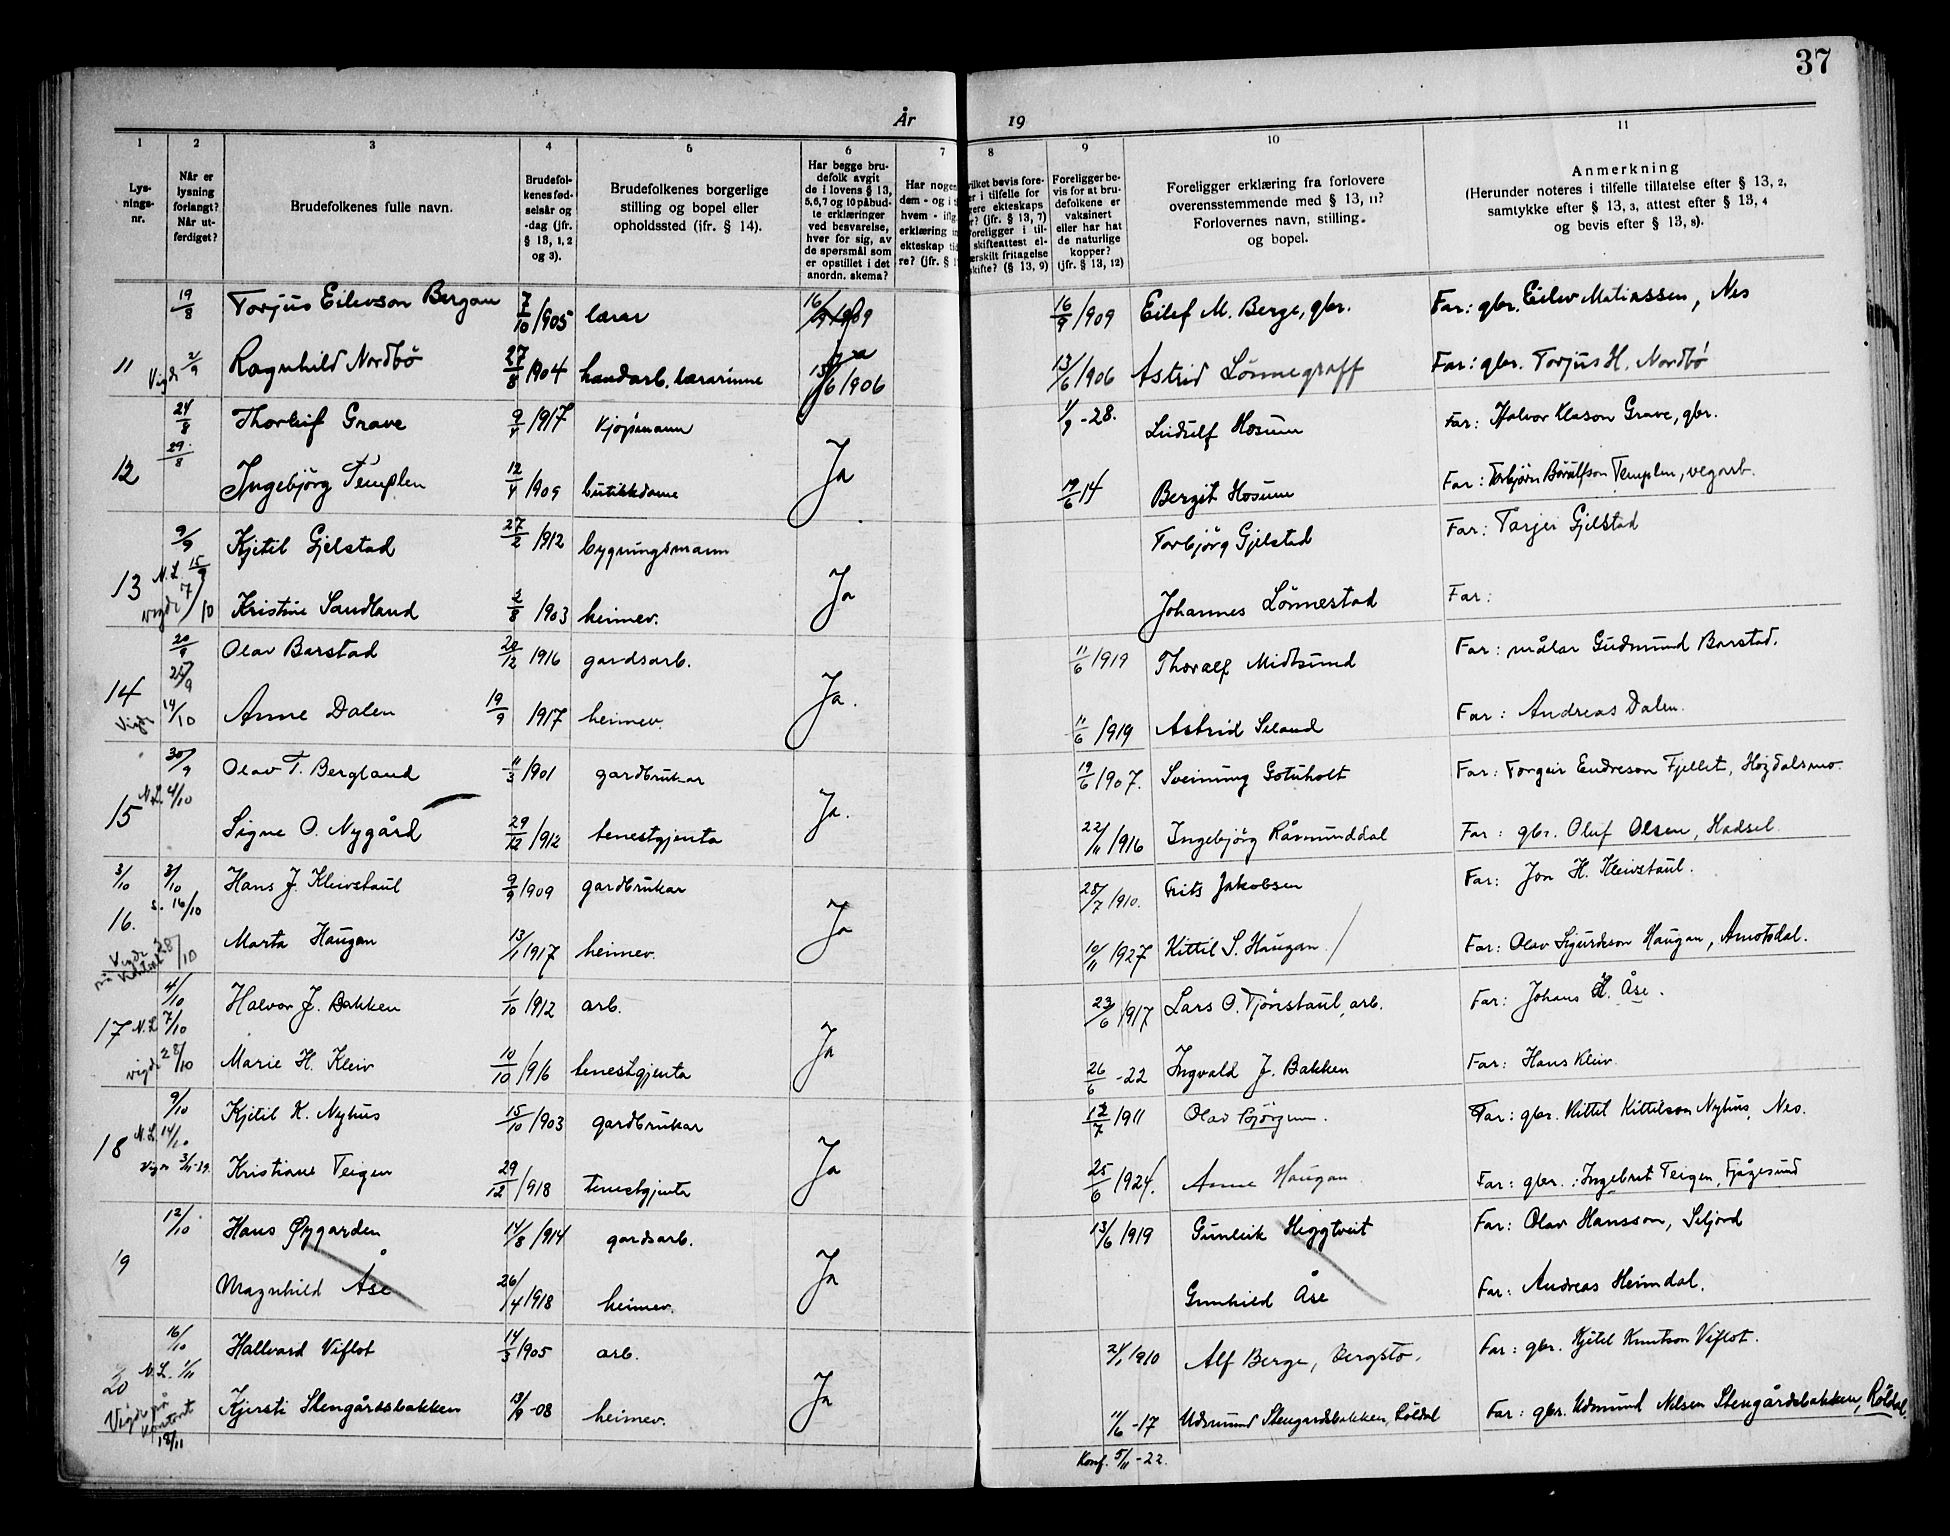 37
År 19
1 2 3 4 5 6 7 8 9 10 11
Lys-
nings-
nr.
Når er
lysning
forlangt?
Når ut-
ferdiget?
Brudefolkenes fulle navn.
Brudefol-
kenes fød-
selsår og
-dag (jfr.
§ 13, 1, 2
og 3).
Brudefolkenes borgerlige
stilling og bopel eller
opholdssted (jfr. § 14).
Har begge bru-
defolk avgit
de i lovens § 13,
5, 6, 7 og 10 påbud-
te erklæringer
ved besvarelse,
hver for sig, av
de spørsmål som
er opstillet i det
anordn. skema?
Har nogen
dem - og i
hvem - ifl.
erklæring in
ekteskap tid
re? (jfr. §
vilket bevis fore-
er i tilfelle for
ere ekteskaps
r? (jfr. § 13, 7)
Foreligger i til-
skifteattest el-
ærskilt fritagelse
skifte? (§ 13, 9)
Foreligger be-
vis for at bru-
defolkene er
vaksinert
eller har hat
de naturlige
kopper?
(jfr. § 13, 12)
Foreligger erklæring fra forlovere
overensstemmende med § 13, 11?
Forlovernes navn, stilling
og bopel.
Anmerkning
(Herunder noteres i tilfelle tillatelse efter § 13, 2,
samtykke efter § 13, 3, attest efter § 13, 4
og bevis efter § 13, 8).
19/8 Torjus Eilevson Bergan 7/10 1905 lærar 16/9 1909 16/9 1909 Eilef M. Berge, gbr. Far: gbr. Eilev Matiassen, Nes
11 Vigde 2/9 Ragnhild Nordbö 27/8 1904 handarb. lærarinne Ja 13/6 1906 13/6 1906 Astrid Lönnegraff Far: gbr. Torjus H. Nordbö
24/8 Thorleif Grave 9/4 1917 kjöpmann -28. Hosum Far: Halvor Grave, gbr.
12 29/8 Ingebjörg Templen 12/4 1909 butikkdame Ja 19/6 14 Bergit Hosum Far: Torbjörn Templen, vegarb.
9/9 Kjetil Gjelstad 27/2 1912 bygningsmann Torbjörg Gjelstad Far: Tarjei Gjelstad
13 N.L. 15/9 Vigde 7/10 Kristine Sandland 2/8 1903 heimev. Ja Johannes Lönnestad Far:
20/9 Olav Barstad 20/12 1916 gardsarb. 11/6 1919 Thoralf Midtsund Far: målar Gudmund Barstad.
14 Vigde 14/10 Anne Dalen 19/9 1917 heimev. Ja. 11/6 1919 Astrid Seland Far: Andreas Dalen.
30/9 Olav T. Bergland 11/3 1901 gardbrukar 19/6 1907. Sveinung Gotuholt Far: Torgeir Endreson Fjellet, Høydalsmo.
15 N.L. 4/10 Signe O. Nygård 29/12 1912 tenestgjenta Ja. 22/11 1916 Ingebjörg Råmunddal Far: gbr. Oluf Olsen, Hadsel.
3/10 3/10 Hans J. Kleivstaul 9/9 1909 gardbrukar 28/7 1910. Frits Jakobsen Far: Jon H. Kleivstaul.
16. s. 16/10 Vigde 28/10 på Marta Haugan 13/1 1917 heimev. Ja 10/11 1927 Kittil S. Haugan Far: Olav Sjurdson Haugan, Åmotsdal.
4/10 Halvor J. Bakken 1/10 1912 arb. 23/6 1917 Lars O. Tjönstaul, arb. Far: Johans H. Åse.
17 N.L. 7/10 vigde 28/10 Marie H. Kleiv 10/10 1916 tenestgjenta Ja 26/6 -22 Ingvald J. Bakken Far: Hans Kleiv.
9/10 Kjetil K. Nyhus 15/10 1903 gardbrukar 12/7 1911 Olav Björgum. Far: gbr. Kittil Kittilson Nyhus, Nes.
18 N.L. 14/10 Vigde Kristiane Teigen 29/12 1918 tenestgjenta Ja 25/6 1924. Anne Haugan. Far: gbr. Ingebret Teigen, Fjågesund
12/10 Hans Øygarden 14/8 1914 gardsarb. 13/6 1919 Gunleik Heggtveit Far: Olav Hansson, Seljord
19 Magnhild Åse 26/4 1918 heimev. Ja Gunhild Åse Far: Andreas Heimdal.
16/10 Hallvard Viflot 14/3 1905 arb. 1910 Alf Berge, Bergsto. Far: gbr. Kjetil Knutson Viflot.
20 N.L. 1/11 Vigde på kontoret 18/11 Kjersti Stengårdsbakken 13/9 -08 heimev. Ja 11/6 -17 Udmund Stengardsbakken, Röldal Far: gbr. Udmund Nilsen Stengårdsbakken, Röldal.
Konf. 5/11 -22.